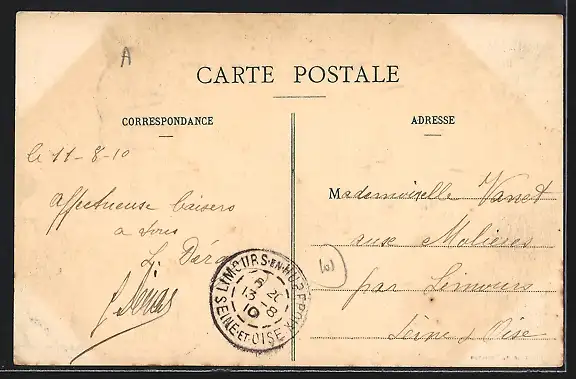 A
CARTE POSTALE
CORRESPONDANCE
ADRESSE
le 11-8-10
affectueuse baisers
a tous
Mademoiselle Vanet
aux Molières
par Limours
Seine & Oise
LIMOURS-EN-HUREPOIX
13-8
10
SEINE-ET-OISE